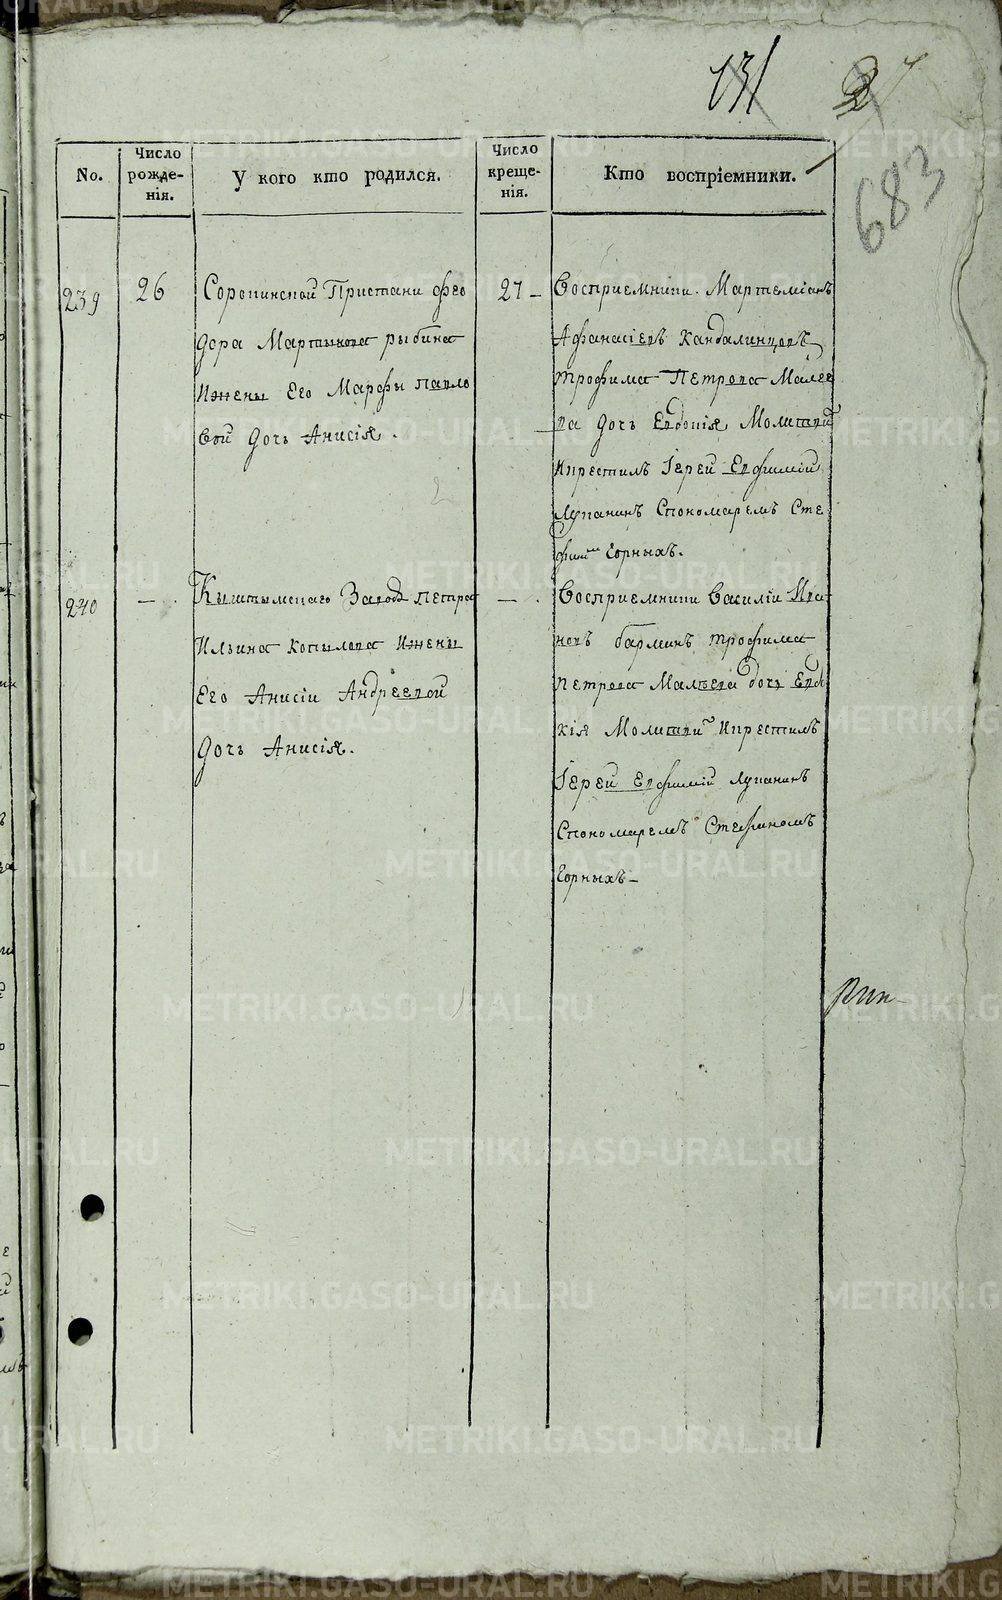 131
27
683
No.
Число рожде-нія.
У кого кто родился.
Число креще-нія.
Кто воспріемники.
239
26
Сорокинской Пристани Фео
дора Мартынова рыбина
Ижены Его Марфы Павло
вой дочь Анисія.
27 –
Восприемники. Мартеміанъ
Афанасіевъ Кандалинцовъ
трофима Петрова Малее
ва дочь Евдокія Молитвил
Икрестилъ Іерей Евфимій
Лупанинъ Спономаремъ Сте
Горныхъ.
240
– .
Кыштымскаго Завода петра
Ильина Копылова Ижены
Его Анисіи Андреевой
дочь Анисія.
– .
Восприемники Василіи Ива
новъ барминъ трофима
петрова Малѣева дочь Евдо
кія Молитвил Икрестилъ
Іерей Евфимій Лупанинъ
Спономаремъ Стефаномъ
Горныхъ –
METRIKI.GASO-URAL.RU